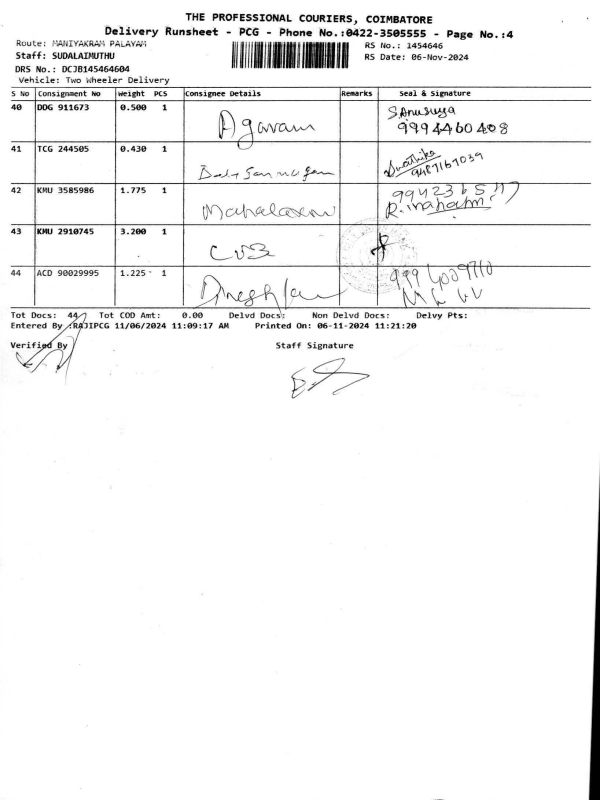 THE PROFESSIONAL COURIERS, COIMBATORE
Delivery Runsheet - PCG - Phone No.:0422-3505555 - Page No.:4
Route: MANIYAKRAM PALAYAM
RS No.: 1454646
Staff: SUDALAIMUTHU
RS Date: 06-Nov-2024
DRS No.: DCJB145464604
Vehicle: Two Wheeler Delivery
S No Consignment No Weight PCS Consignee Details Remarks Seal & Signature
40 DDG 911673 0.500 1 Agaram S.Anusuya
9994460408
41 TCG 244505 0.430 1 Swathika
9487167039
42 KMU 3585986 1.775 1 Mahalaxmi
43 KMU 2910745 3.200 1 CUB
44 ACD 90029995 1.225 1
Tot Docs: 44 Tot COD Amt: 0.00 Delvd Docs: Non Delvd Docs: Delvy Pts:
Entered By :RAJIPCG 11/06/2024 11:09:17 AM Printed On: 06-11-2024 11:21:20
Verified By Staff Signature